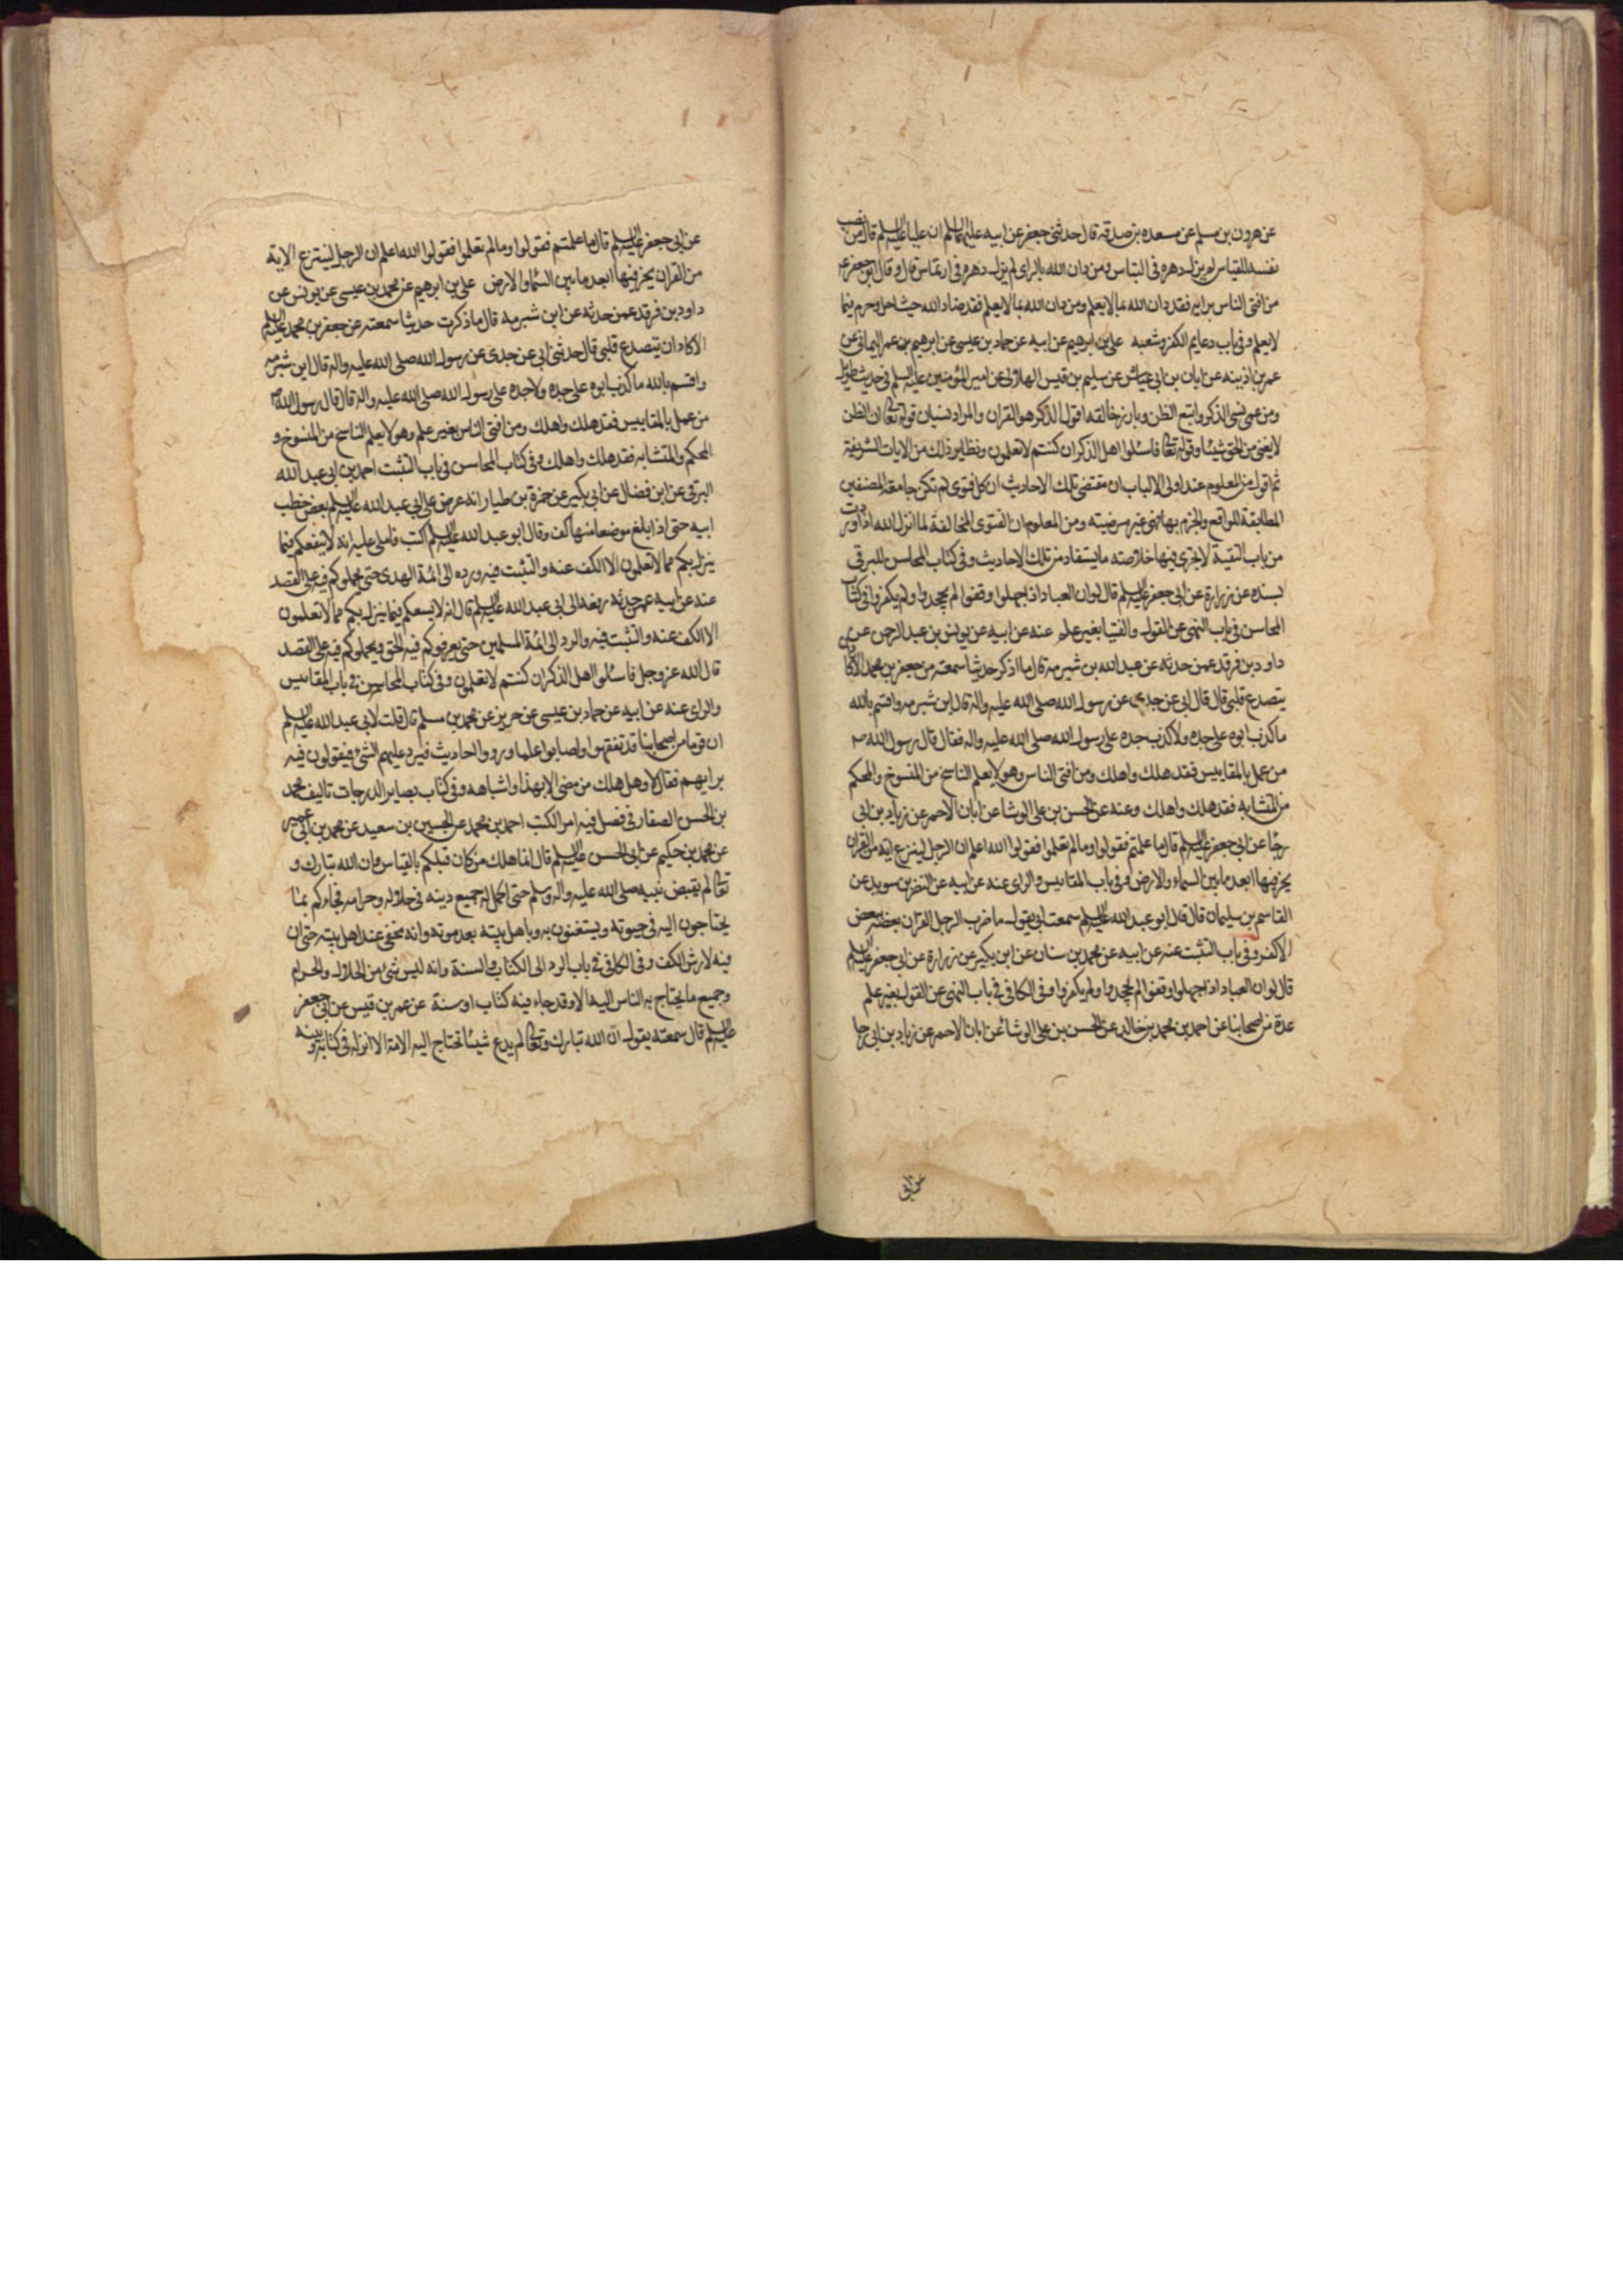 عن هرون بن مسلم عن مسعده بن صدقه قال حدثنى جعفر عن ابيه عليهما السلم ان عليا عليه السلم قال من نصب
نفسه للقياس لم يزل دهره فى التباس ومن دان الله بالراى لم يزل دهره فى ارتماس قال و قال ابو جعفر ع
من افتى الناس برايه فقد دان الله بما لا يعلم ومن دان الله بما لا يعلم فقد ضاد الله حيث احل وحرم فيما
لا يعلم وفى باب دعايم الكفر وشعبه على بن ابرهيم عن ابيه عن حماد بن عيسى عن ابرهيم بن عمر اليمانى عن
عمر بن اذينه عن ابان بن ابى عياش عن سليم بن قيس الهلالى عن امير المؤمنين عليه السلم فى حديث طويل
ومن عمى نسى الذكر واتبع الظن وبارز خالقه اقول الذكر هو القران والمراد نسيان قوله تعالى ان الظن
لا يغنى من الحق شيئا وقوله تعالى فاسئلوا اهل الذكر ان كنتم لا تعلمون ونظاير ذلك من الايات الشريفة
ثم اقول من المعلوم عند اولى الالباب ان مقتضى تلك الاحاديث ان كل فتوى لم تكن جامعة لوصفين
المطابقة للواقع والجزم بها فهى غير مرضيته ومن المعلوم ان الفتوى المخالفة لما انزل الله اذا وردت
من باب التقية لا يجزى فيها خلاصته ما يستفاد من تلك الاحاديث وفى كتاب المحاسن للبرقى
بسنده عن زرارة عن ابى جعفر عليه السلم قال لو ان العباد اذ اجهلوا وقفوا لم يجحدوا ولم يكفروا وفى كتاب
المحاسن فى باب النهى عن القول والفتيا بغير علم عنه عن ابيه عن يونس بن عبد الرحمن عن
داود بن فرقد عمن حدثه عن عبد الله بن شبرمه قال ما اذكر حديثا سمعته من جعفر بن محمد الا كاد
يتصدع قلبى قال قال ابى عن جدى عن رسول الله صلى الله عليه واله قال ابن شبرمه واقسم بالله
ما كذب ابوه على جده ولا كذب جده على رسول الله صلى الله عليه واله فقال قال رسول الله ص
من عمل بالمقاييس فقد هلك واهلك ومن افتى الناس وهو لا يعلم الناسخ من المنسوخ والمحكم
من المتشابه فقد هلك واهلك وعنه عن الحسن بن على الوشا عن ابان الاحمر عن زياد بن ابى
رجا عن ابى جعفر عليه السلم قال ما علمتم فقولوا وما لم تعلموا فقولوا الله اعلم ان الرجل لينزع اية من القران
يخر فيها ابعد ما بين السماء والارض وفى باب المقاييس والراى عنه عن ابيه عن النضر بن سويد عن
القاسم بن سليمان قال قال ابو عبد الله عليه السلم سمعت ابى يقول ما ضرب الرجل القران بعضه ببعض
الا كفر وفى باب التثبت عنه عن ابيه عن محمد بن سنان عن ابن بكير عن زرارة عن ابى جعفر عليه السلم
قال لو ان العباد اذ اجهلوا وقفوا لم يجحدوا ولم يكفروا وفى الكافى فى باب النهى عن القول بغير علم
عدة من اصحابنا عن احمد بن محمد بن خالد عن الحسن بن على الوشا عن ابان الاحمر عن زياد بن ابى رجا
عن ابى
عن ابى جعفر عليه السلم قال ما علمتم فقولوا وما لم تعلموا فقولوا الله اعلم ان الرجل لينتزع الاية
من القران يخر فيها ابعد ما بين السما والارض على بن ابرهيم عن محمد بن عيسى عن يونس عن
داود بن فرقد عمن حدثه عن ابن شبرمه قال ما ذكرت حديثا سمعته عن جعفر بن محمد عليه السلم
الا كاد ان يتصدع قلبى قال حدثنى ابى عن جدى عن رسول الله صلى الله عليه واله قال ابن شبرمه
واقسم بالله ما كذب ابوه على جده ولا جده على رسول الله صلى الله عليه واله قال قال رسول الله ص
من عمل بالمقاييس فقد هلك واهلك ومن افتى الناس بغير علم وهو لا يعلم الناسخ من المنسوخ و
المحكم والمتشابه فقد هلك واهلك وفى كتاب المحاسن فى باب التثبت احمد بن ابى عبد الله
البرقى عن ابن فضال عن ابى بكير عن حمزة بن طيار انه عرض على ابى عبد الله عليه السلم بعض خطب
ابيه حتى اذا بلغ موضعا منها كف وقال ابو عبد الله عليه السلم اكتب فاملى عليه انه لا ينفعكم فيما
ينزل بكم مما لا تعلمون الا الكف عنه والتثبت فيه ورده الى ائمة الهدى حتى يحملوكم فيه على القصد
عنه عن ابيه عمن حدثه رفعه الى ابى عبد الله عليه السلم قال انه لا يسعكم فيما ينزل بكم مما لا تعلمون
الا الكف عنه والتثبت فيه والرد الى ائمة المسلمين حتى يعرفوكم فيه الحق ويحملوكم فيه على القصد
قال الله عز وجل فاسئلوا اهل الذكر ان كنتم لا تعلمون وفى كتاب المحاسن فى باب المقاييس
والراى عنه عن ابيه عن حماد بن عيسى عن حريز عن محمد بن مسلم قال قلت لابى عبد الله عليه السلم
ان قوما من اصحابنا قد تفقهوا واصابوا علما ورووا احاديث فيرد عليهم الشئ فيقولون فيه
برايهم فقال لا وهل هلك من مضى الا بهذا واشباهه وفى كتاب بصاير الدرجات تاليف محمد
بن الحسن الصفار فى فصل فيه امر الكتب احمد بن محمد عن الحسين بن سعيد عن محمد بن ابى عمير
عن محمد بن حكيم عن ابى الحسن عليه السلم قال انما هلك من كان قبلكم بالقياس وان الله تبارك و
تعالى لم يقبض نبيه صلى الله عليه واله وسلم حتى اكمل له جميع دينه فى حلاله وحرامه فجاءكم بما
يحتاجون اليه فى حيوته ويستغنون به وباهل بيته بعد موته وانه مخفى عند اهل بيته حتى ان
فيه لارش الكف وفى الكافى فى باب الرد الى الكتاب والسنة وانه ليس شئ من الحلال والحرام
وجميع ما يحتاج به الناس اليه الا وقد جاء فيه كتاب او سنة عن عمر بن قيس عن ابى جعفر
عليه السلم قال سمعته يقول ان الله تبارك وتعالى لم يدع شيئا تحتاج اليه الامة الا انزله فى كتابه وبينه